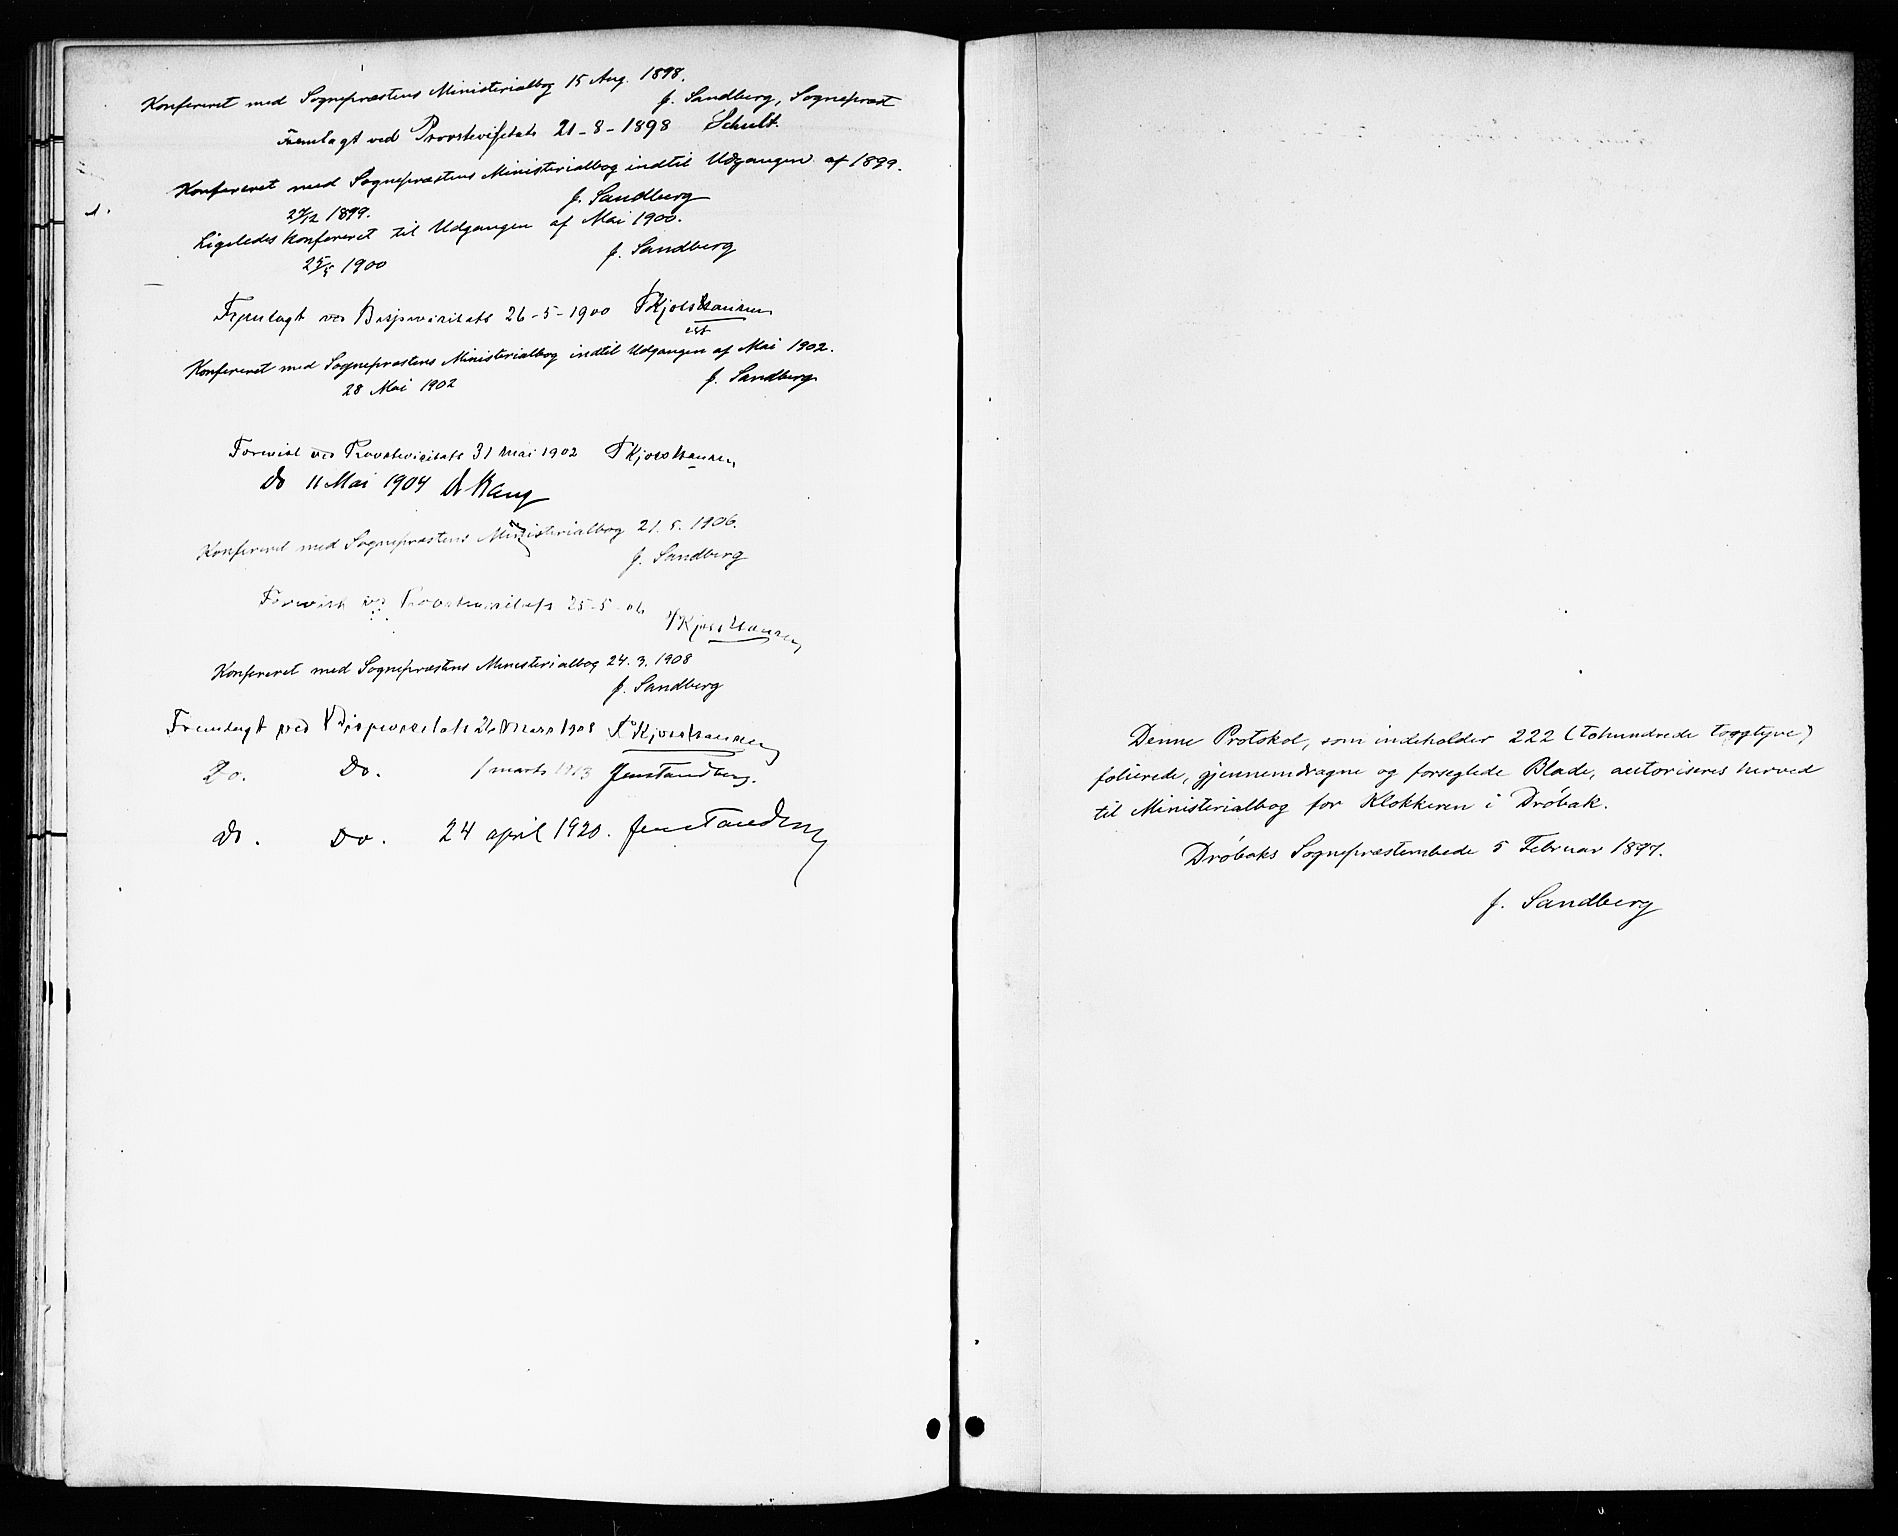 Konfereret med Sognepræstens Ministerialbog 15 Aug. 1898.
J. Sandberg, Sognepræst
Fremlagt ved Provstevisitats 21-8-1898 Schult.
Konfereret med Sognepræstens Ministerialbog indtil Udgangen af 1899.
1899. J. Sandberg
Ligeledes konfereret til Udgangen af Mai 1900.
25/5 1900 J. Sandberg
Fremlagt ved Bispevisitats 26-5-1900
Konfereret med Sognepræstens Ministerialbog indtil Udgangen af Mai 1902.
28 Mai 1902 J. Sandberg
Forevist ved Provstevisitats 31 mai 1902
Do 11 Mai 1904
Konfereret med Sognepræstens Ministerialbog 21.5.1906.
J. Sandberg
Forevist ved Provstevisitats 25-5-06
Konfereret med Sognepræstens Ministerialbog 24.3.1908
J. Sandberg
Fremlagt ved Bispevisitats 26 Mars 1908
Do. Do. 1 marts 1913
Do. Do. 24 april 1920.
Denne Protokol, som indeholder 222 (tohundrede toogtyve)
folierede, gjennemdragne og forseglede Blade, autoriseres herved
til Ministerialbog for Klokkeren i Drøbak.
Drøbaks Sognepræstembede 5 Februar 1897.
J. Sandberg